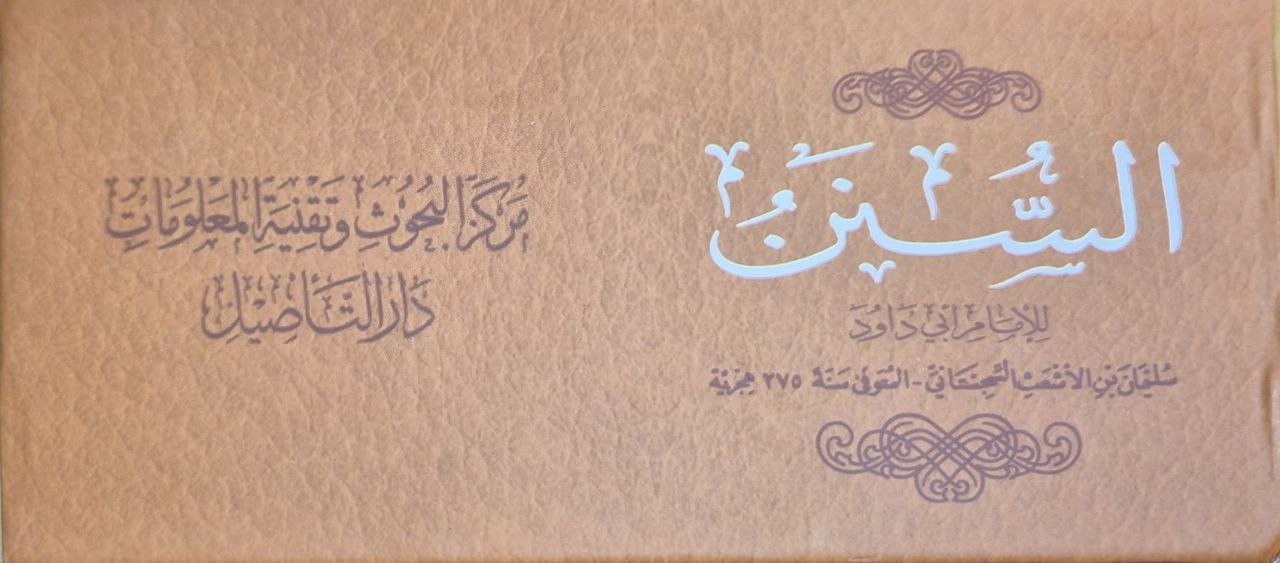 السُّنَنُ
للإمَامِ أبي دَاوُدَ
سُليمَان بن الأشعَث السِّجِسْتَاني - المتوفى سَنَة ٢٧٥ هِجريَّة
مَركَز البُحُوثِ وَتقنِيَةِ المَعلُومَاتِ
دَار التَّأصِيل